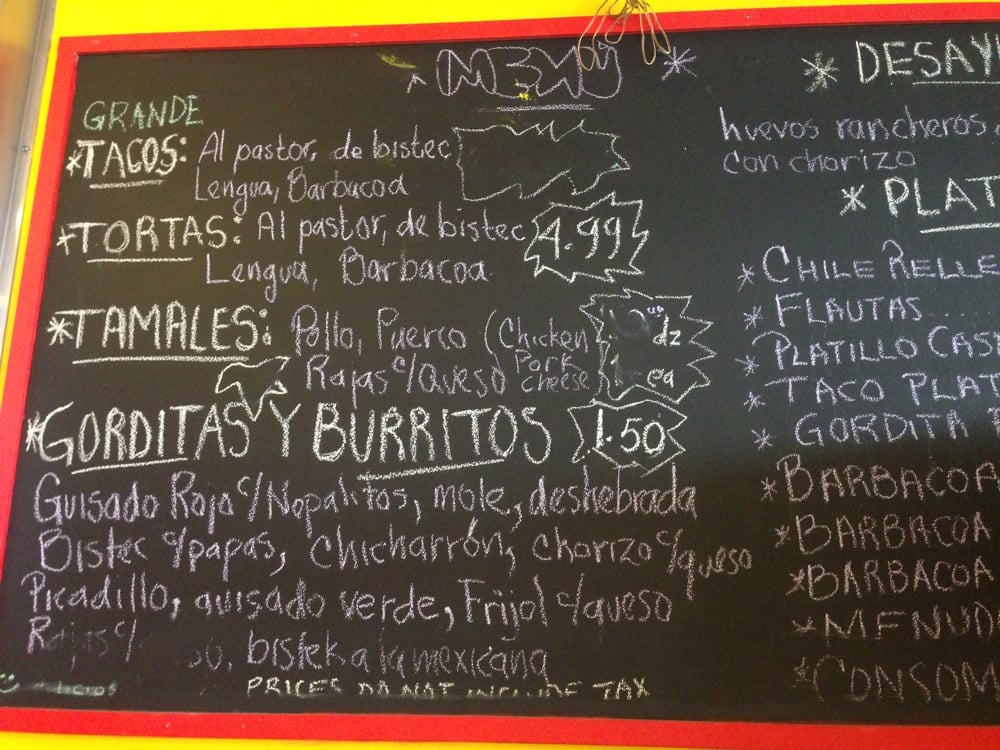 MENU
GRANDE
*TACOS: Al pastor, de bistec
Lengua, Barbacoa
*TORTAS: Al pastor, de bistec 4.99
Lengua, Barbacoa
*TAMALES: Pollo, Puerco (Chicken
Rajas c/queso Pork
cheese
dz
ea
*GORDITAS Y BURRITOS 1.50
Guisado Rojo c/Nopalitos, mole, deshebrada
Bistec c/papas, chicharrón, chorizo c/queso
Picadillo, guisado verde, Frijol c/queso
Rajas c/ so, bistek a la mexicana
PRICES DO NOT INCLUDE TAX
* DESAY
huevos rancheros
con chorizo
* PLAT
* CHILE RELLE
* FLAUTAS
* PLATILLO CAS
* TACO PLAT
* GORDITA
* BARBACOA
* BARBACOA
* BARBACOA
* MENUD
* CONSOM